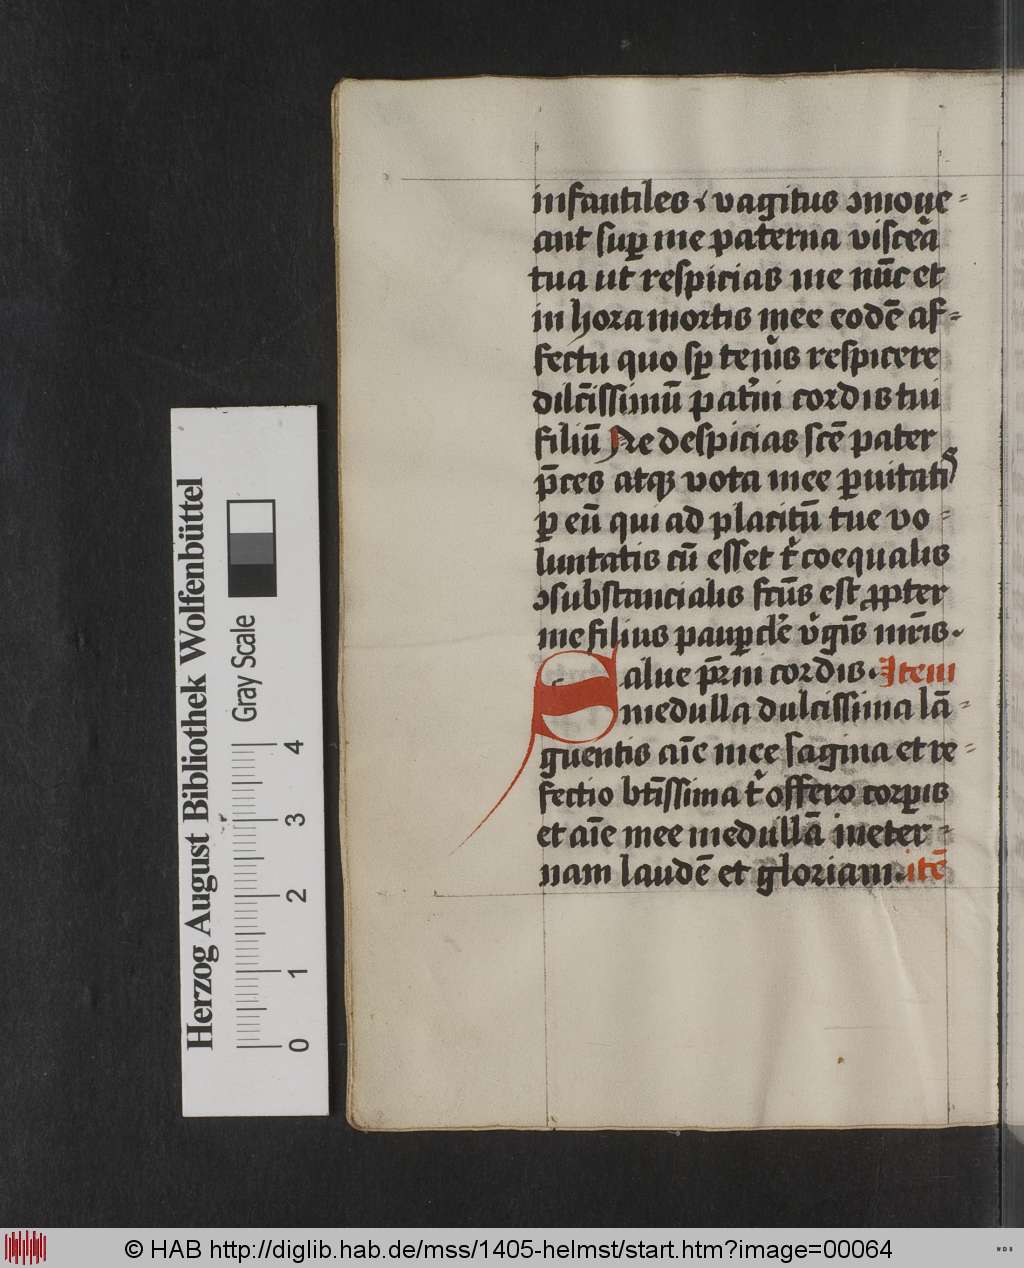 infantiles vagitus ꝯmoue⸗
ant suꝑ me paterna viscea
tua ut respicias me nūc et
in hora mortis mee eodē af⸗
fectu quo sꝑ teius respicere
dilc̄issimū pat̉ni cordis tui
filiū Ne despicias scē pater
p̄ces atqꝫ vota mee ꝑuitatꝭ
ꝑ eū qui ad placitū tue vo⸗
luntatis cū esset t̉ coequalis
ꝯsubstancialis fcūs est ꝓpter
me filius pauꝑcle v̉gīs mr̄is.
Salue pr̄ni cordis. Item
medulla dulcissima lā⸗
guentis aīe mee sagina et re⸗
fectio bt̄issima t̉ offero corꝑis
et aīe mee medullā in eter⸗
nam laudē et gloriam. itē
Herzog August Bibliothek Wolfenbüttel
Gray Scale
0 1 2 3 4
© HAB http://diglib.hab.de/mss/1405-helmst/start.htm?image=00064